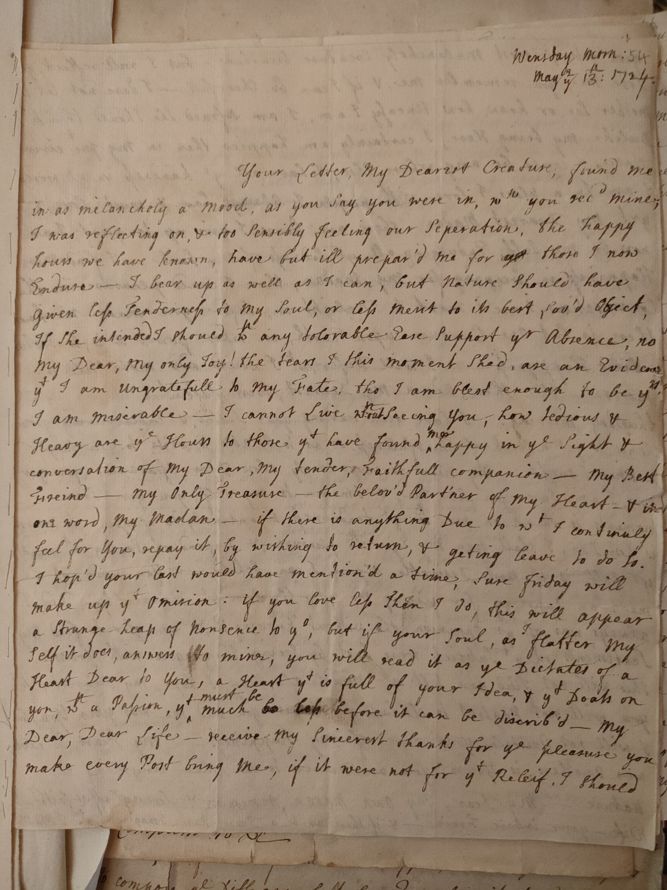 Wensday Morn: 54
May yᵉ 13ᵗʰ: 1724.
Your Letter, My Dearest Creature, found me
in as melancholy a mood, as you say you were in, wⁿ you rec'd mine,
I was reflecting on, & too sensibly feeling our Seperation, the happy
hours we have known, have but ill prepar'd me for those I now
Endure — I bear up as well as I can, but Nature should have
Given less Tenderness to My Soul, or less merit to its best Lov'd Object,
If She intended I should wᵗʰ any tolorable Ease Support yʳ Absence, no
My Dear, My only Joy! the tears I this moment Shed, are an Evidence
yᵗ I am ungratefull to my Fate, tho I am blest enough to be yʳˢ.
I am miserable — I cannot Live wᵗʰout Seeing You, how tedious &
Heavy are yᵉ Hours to those yᵗ have found me happy in yᵉ Sight &
conversation of My Dear, My tender, Faithfull companion — My Best
Freind — My Only Treasure — the belov'd Part'ner of My Heart — & in
one word, My Madan — if there is anything Due to wᵗ I continuly
feel for You, repay it, by wishing to return, & geting leave to do so.
I hop'd your last would have mention'd a time, Sure Friday will
make up yᵗ Omision: if you love less then I do, this will appear
a Strange heap of Nonsence to yᵒ, but if your Soul, as I flatter My
Self it does, answers to mine, you will read it as yᵉ Dictates of a
Heart Dear to You, a Heart yᵗ is full of your Idea, & yᵗ Doats on
you, wᵗʰ a Passion, yᵗ must be much less before it can be discrib'd — My
Dear, Dear Life — receive My Sincerest thanks for yᵉ pleasure you
make every Post bring Me, if it were not for yᵗ Releif, I should